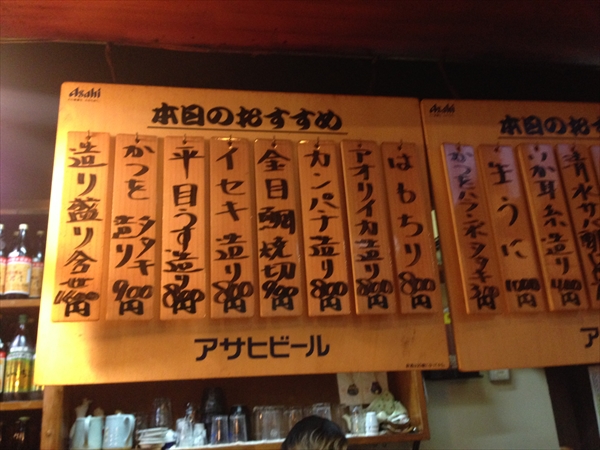 Asahi
本日のおすすめ
はもちり 800円
アオリイカ造り 800円
カンパチ造り 800円
金目鯛焼切 900円
イセキ造り 800円
平目うす造り 800円
かつを タタキ 造り 900円
造り盛り合せ 1600円
アサヒビール
Asahi
本日のおす
生うに 1000円
いか耳糸造り 400円
清水サ
ア